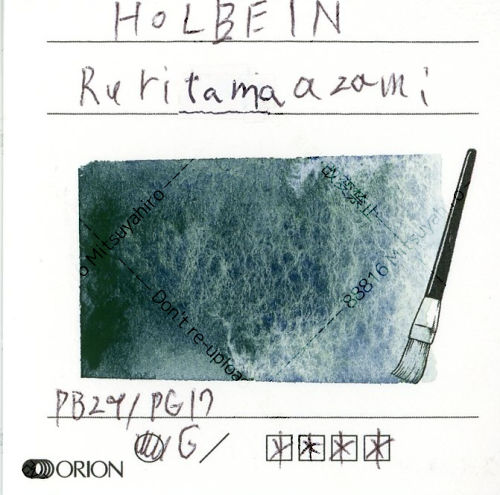 HOLBEIN
Ruritamaazami
改変禁止
Mitsuyahiro
83816 Mitsuyahiro
Don't re-upload
PB29/PG17
G/
ORION